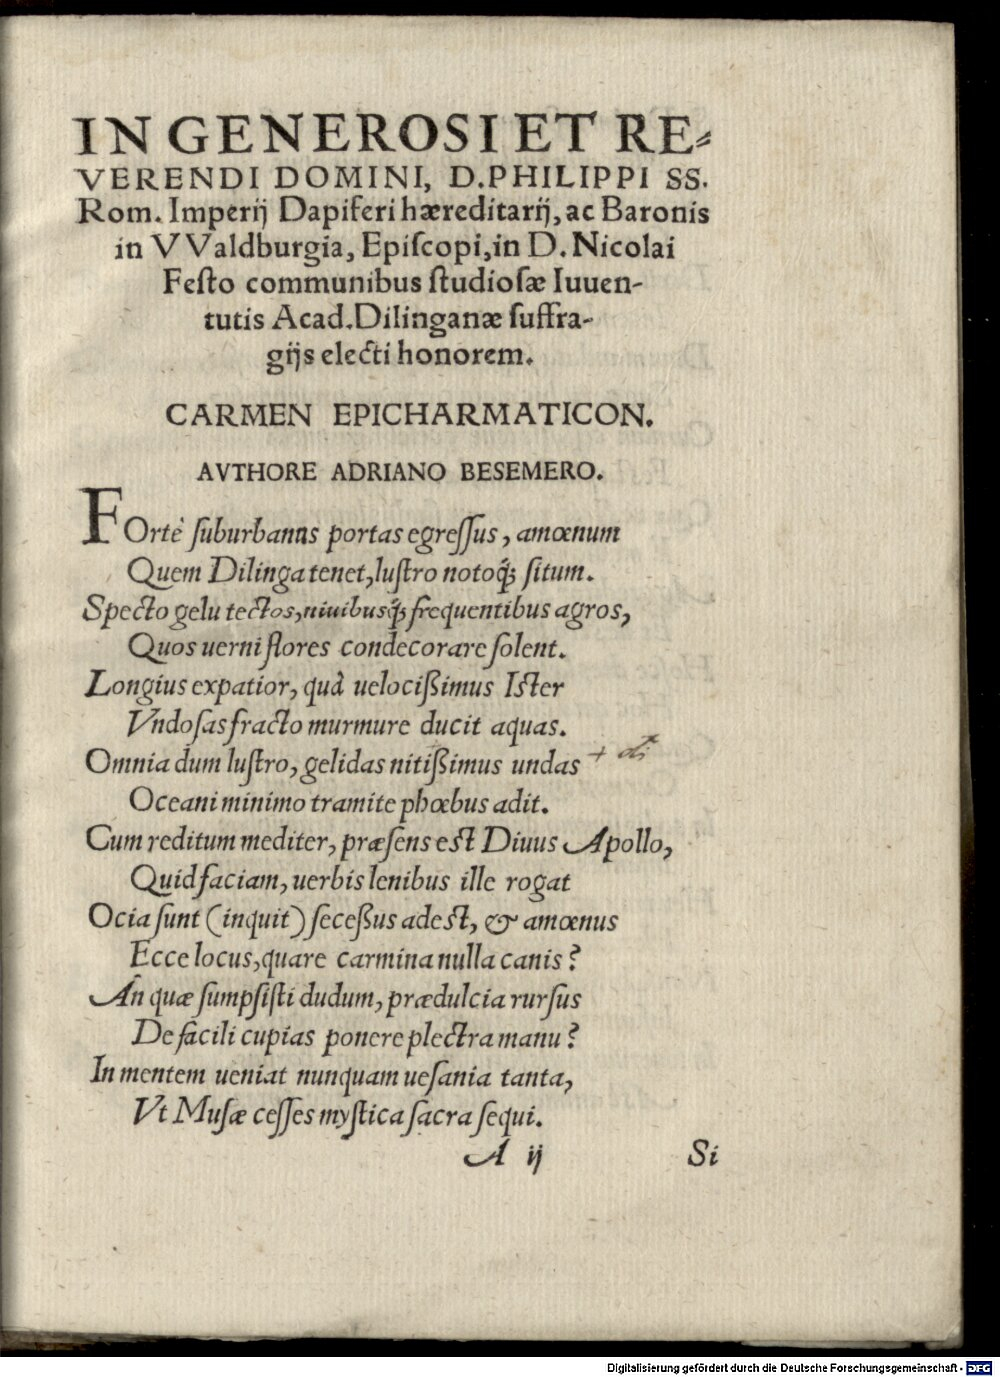 IN GENEROSI ET RE⸗
VERENDI DOMINI, D. PHILIPPI SS.
Rom. Imperij Dapiferi hæreditarij, ac Baronis
in VValdburgia, Epiſcopi, in D. Nicolai
Feſto communibus ſtudioſæ Iuuen-
tutis Acad. Dilinganæ ſuffra-
gijs electi honorem.
CARMEN EPICHARMATICON.
AVTHORE ADRIANO BESEMERO.
FOrtè ſuburbanas portas egreſſus, amœnum
Quem Dilinga tenet, luſtro notoq́; ſitum.
Specto gelu tectos, niuibusq́; frequentibus agros,
Quos uerni flores condecorare ſolent.
Longius expatior, quà uelocißimus Iſter
Vndoſas fracto murmure ducit aquas.
Omnia dum luſtro, gelidas nitißimus undas +
Oceani minimo tramite phœbus adit.
Cum reditum mediter, præſens eſt Diuus Apollo,
Quid faciam, uerbis lenibus ille rogat
Ocia ſunt (inquit) ſeceßus adeſt, & amœnus
Ecce locus, quare carmina nulla canis?
An quæ ſumpſiſti dudum, prædulcia rurſus
De facili cupias ponere plectra manu?
In mentem ueniat nunquam ueſania tanta,
Vt Muſæ ceſſes myſtica ſacra ſequi.
A ij Si
Digitalisierung gefördert durch die Deutsche Forschungsgemeinschaft - DFG